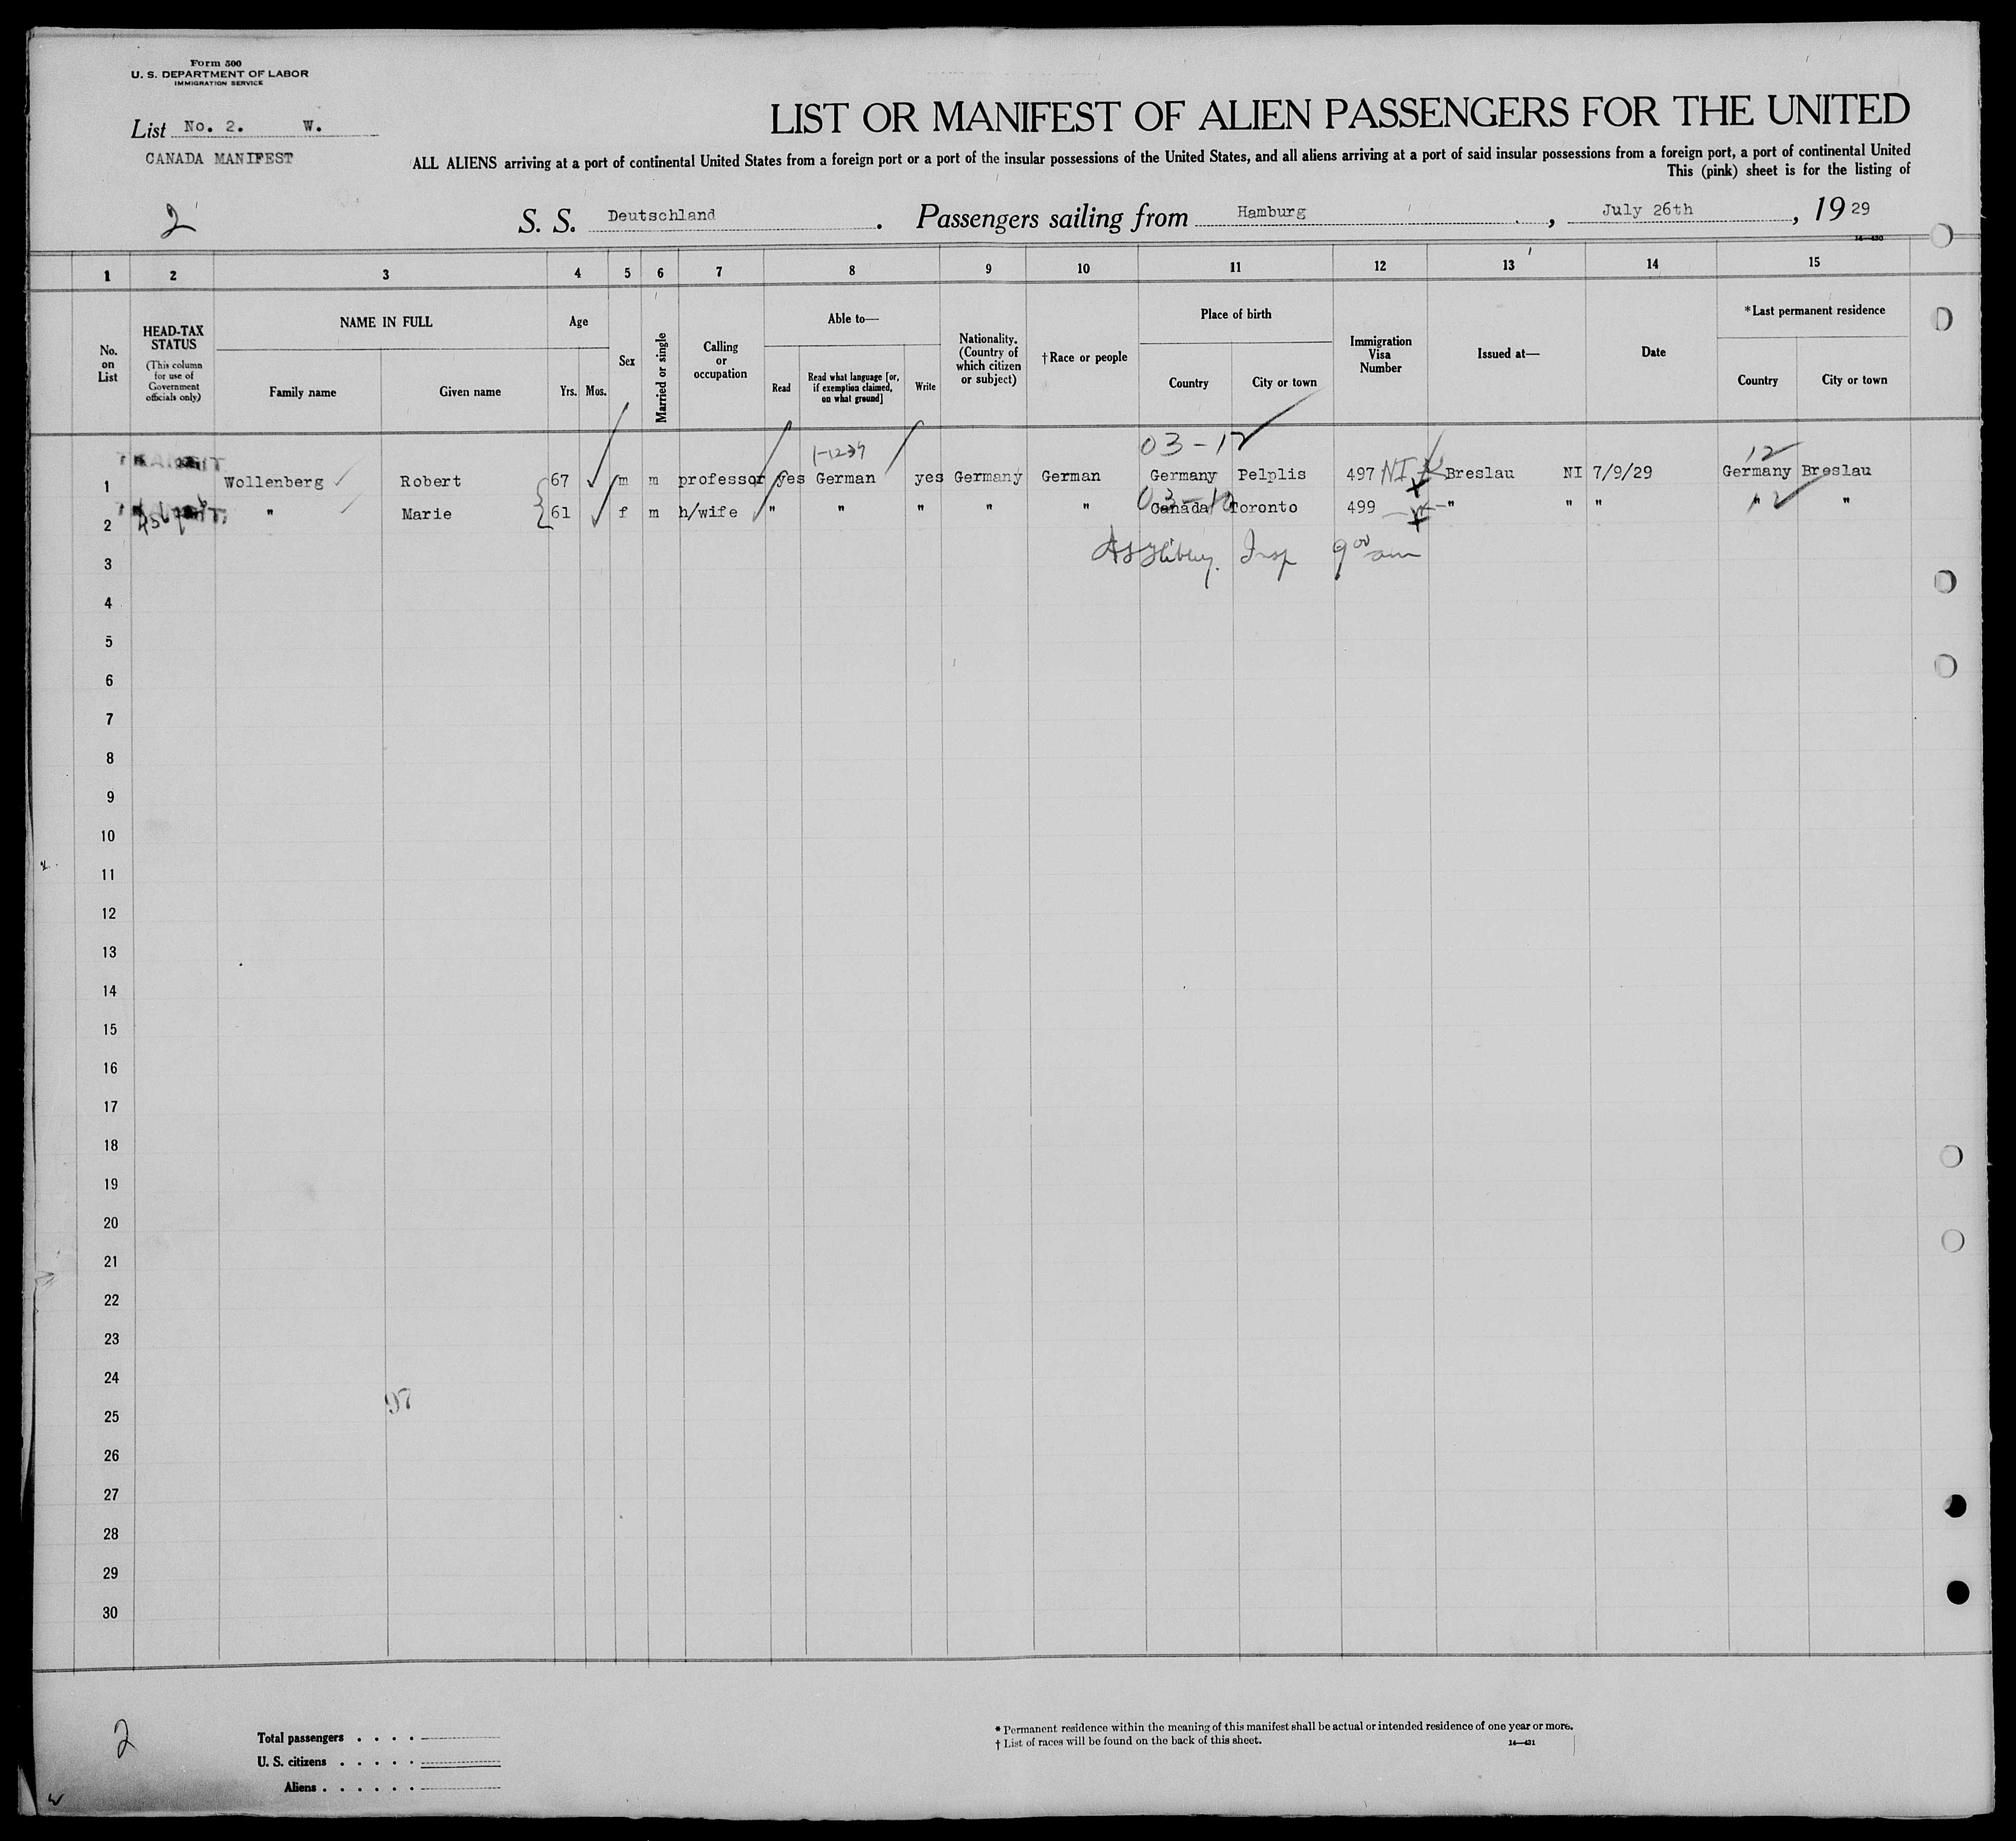 Form 500
U. S. DEPARTMENT OF LABOR
IMMIGRATION SERVICE
List No. 2. W.
CANADA MANIFEST
LIST OR MANIFEST OF ALIEN PASSENGERS FOR THE UNITED
ALL ALIENS arriving at a port of continental United States from a foreign port or a port of the insular possessions of the United States, and all aliens arriving at a port of said insular possessions from a foreign port, a port of continental United
This (pink) sheet is for the listing of
2
S. S. Deutschland. Passengers sailing from Hamburg, July 26th, 19 29
14—430
1 2 3 4 5 6 7 8 9 10 11 12 13 14 15
No. on List
HEAD-TAX STATUS
(This column for use of Government officials only)
NAME IN FULL
Family name Given name
Age
Yrs. Mos.
Sex
Married or single
Calling or occupation
Able to—
Read
Read what language [or, if exemption claimed, on what ground]
Write
Nationality. (Country of which citizen or subject)
†Race or people
Place of birth
Country City or town
Immigration Visa Number
Issued at—
Date
*Last permanent residence
Country City or town
03-12
12
1 TRANSIT Wollenberg Robert 67 m m professor yes German yes Germany German Germany Pelplis 497 NI Breslau NI 7/9/29 Germany Breslau
2 " Marie 61 f m h/wife " " " " " Canada Toronto 499 " " " " "
Insp 9 00 am
3
4
5
6
7
8
9
10
11
12
13
14
15
16
17
18
19
20
21
22
23
24
97
25
26
27
28
29
30
2
Total passengers . . . .
U. S. citizens . . . . .
Aliens . . . . . .
* Permanent residence within the meaning of this manifest shall be actual or intended residence of one year or more.
† List of races will be found on the back of this sheet.
14—431